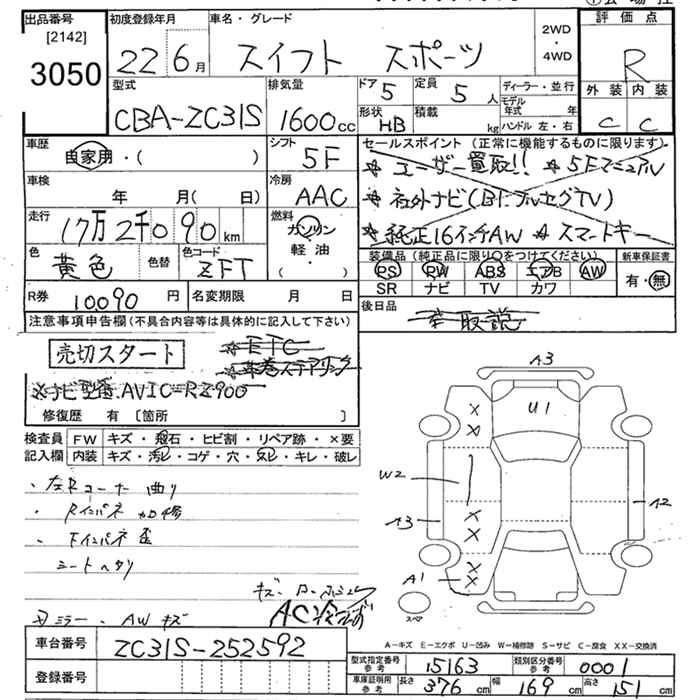 出品番号
[2142]
3050
初度登録年月
22 6月
車名・グレード
スイフト スポーツ
2WD
・
4WD
評価点
R
外装 内装
C C
型式
CBA-ZC31S
排気量
1600cc
ドア 5
定員 5人
形状 HB
積載 kg
ディーラー・並行
モデル年式 年
ハンドル 左・右
車歴
自家用・(
シフト
5F
車検
年 月( 日)
冷房
AAC
走行
17万2千090km
燃料
ガソリン
軽油
・
( )
色
黄色
色替
色コード
ZFT
R券 10090円
名変期限 月 日
セールスポイント(正常に機能するものに限ります)
☆ユーザー買取!! ☆5Fマニュアル
☆社外ナビ(Bt.フルセグTV)
☆純正16インチAW ☆スマートキー
装備品(純正品に限り○をつけてください)
PS PW ABS エアB AW
SR ナビ TV カワ
新車保証書
有・無
後日品
取説
注意事項申告欄(不具合内容等は具体的に記入して下さい)
売切スタート
☆ETC
ステアリング
※ナビ型番:AVIC-RZ900
修復歴 有 〔箇所 〕
検査員
記入欄
FW キズ・飛石・ヒビ割・リペア跡・×要
内装 キズ・汚レ・コゲ・穴・スレ・キレ・破レ
・左Rコーナー曲り
・Rインパネ加修
・Fインパネ歪
シートヘタリ
AC
ミラー・AWキズ
A3
U1
W2
A3
A2
A1
スペア
A-キズ E-エクボ U-凹み W-補修跡 S-サビ C-腐食 XX-交換済
車台番号 ZC31S-252592
登録番号
型式指定番号 参考 15163
類別区分番号 参考 0001
車庫証明用 参考 長さ 376cm 幅 169cm 高さ 151cm